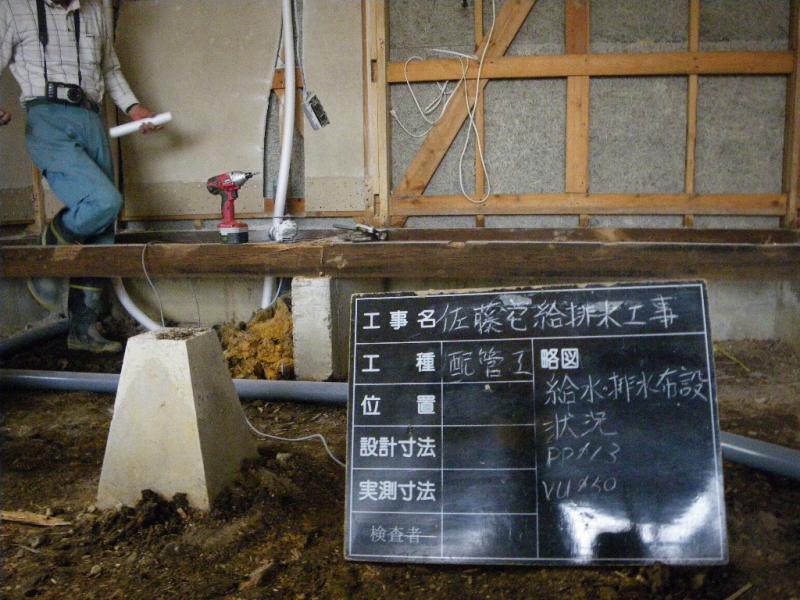 工事名 佐藤宅給排水工事
工種 配管工
略図
給水・排水布設
状況
PPφ13
VUφ50
位置
設計寸法
実測寸法
検査者